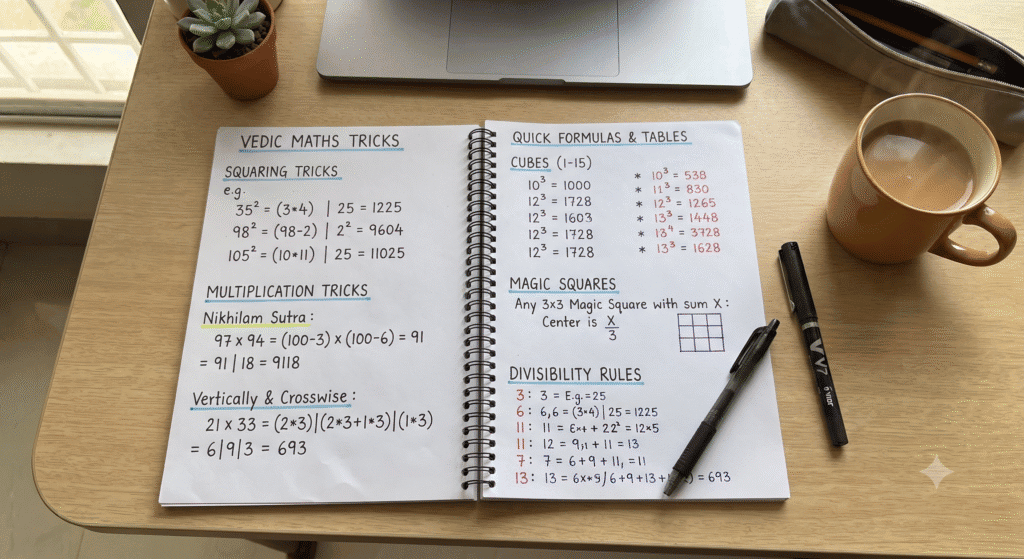 VEDIC MATHS TRICKS
SQUARING TRICKS
e.g.
35² = (3*4) | 25 = 1225
98² = (98-2) | 2² = 9604
105² = (10*11) | 25 = 11025
MULTIPLICATION TRICKS
Nikhilam Sutra:
97 x 94 = (100-3) x (100-6) = 91
= 91 | 18 = 9118
Vertically & Crosswise:
21 x 33 = (2*3)|(2*3+1*3)|(1*3)
= 6|9|3 = 693
QUICK FORMULAS & TABLES
CUBES (1-15)
10³ = 1000
12³ = 1728
12³ = 1603
12³ = 1728
12³ = 1728
* 10³ = 538
* 11³ = 830
* 12³ = 1265
* 13³ = 1448
* 13⁴ = 3728
* 13³ = 1628
MAGIC SQUARES
Any 3x3 Magic Square with sum X:
Center is X/3
DIVISIBILITY RULES
3: 3 = E.g. = 25
6: 6,6 = (3*4) | 25 = 1225
11: 11 = + 22² = 12*5
11: 12 = + 11 = 13
7: 7 = 6 + 9 + 11, = 11
13: 13 = / 6 + 9 + 13 + = 693
V7